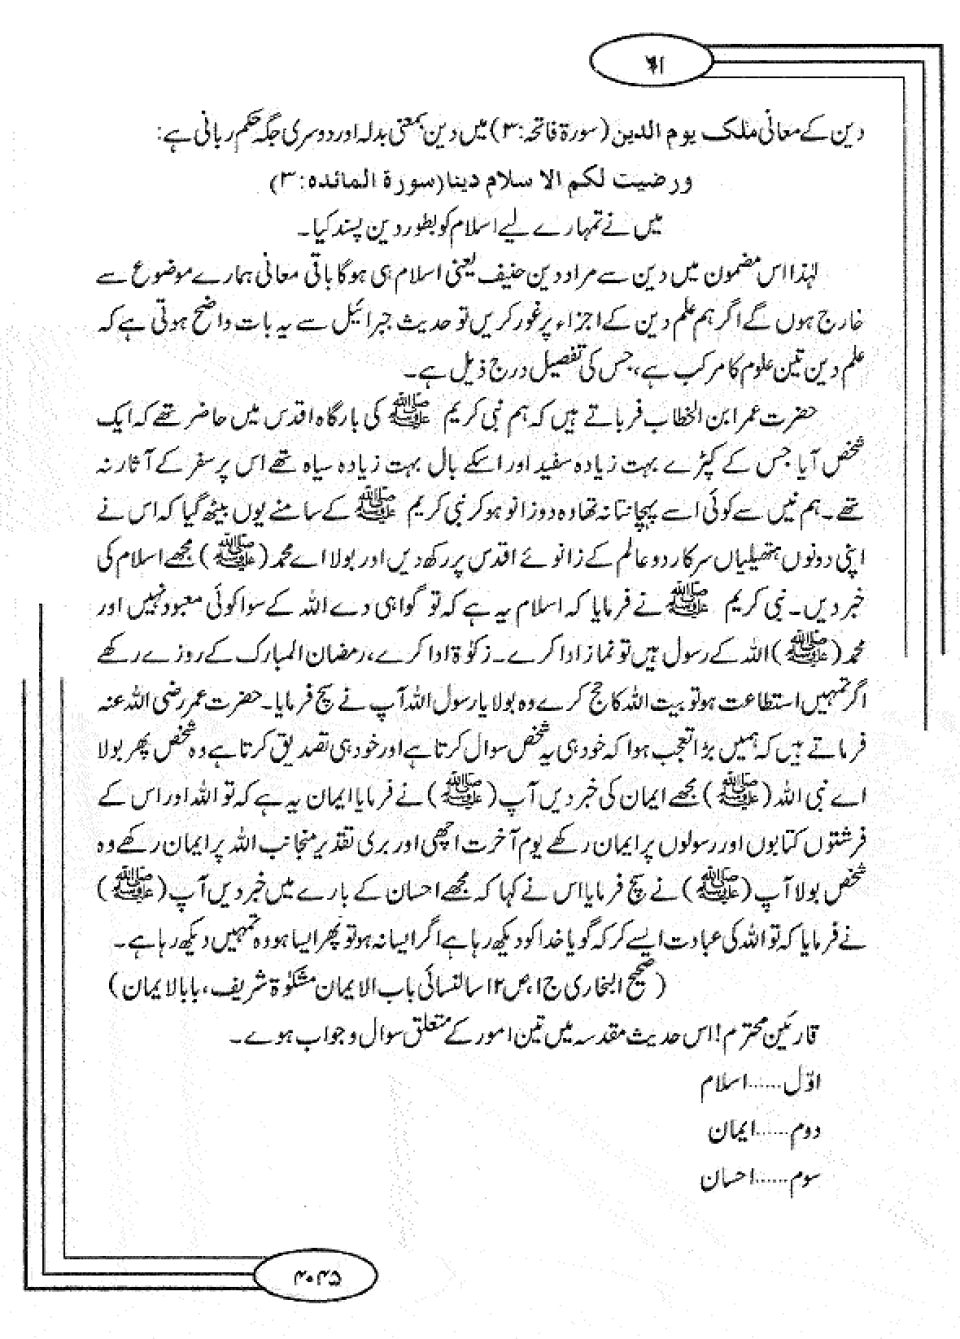 ۶۱
دین کے معانی ملک یوم الدین (سورۃ فاتحہ:۳) میں دین بمعنی بدلہ اور دوسری جگہ حکم ربانی ہے:
ورضیت لکم الا سلام دینا (سورۃ المائدہ:۳)
میں نے تمہارے لیے اسلام کو بطور دین پسند کیا۔
لہٰذا اس مضمون میں دین سے مراد دین حنیف یعنی اسلام ہی ہوگا باقی معانی ہمارے موضوع سے
خارج ہوں گے اگر ہم علم دین کے اجزاء پر غور کریں تو حدیث جبرائیل سے یہ بات واضح ہوتی ہے کہ
علم دین تین علوم کا مرکب ہے، جس کی تفصیل درج ذیل ہے۔
حضرت عمر ابن الخطاب فرماتے ہیں کہ ہم نبی کریم ﷺ کی بارگاہ اقدس میں حاضر تھے کہ ایک
شخص آیا جس کے کپڑے بہت زیادہ سفید اور اسکے بال بہت زیادہ سیاہ تھے اس پر سفر کے آثار نہ
تھے۔ ہم میں سے کوئی اسے پہچانتا نہ تھا وہ دوزانو ہو کر نبی کریم ﷺ کے سامنے یوں بیٹھ گیا کہ اس نے
اپنی دونوں ہتھیلیاں سرکار دو عالم کے زانوئے اقدس پر رکھ دیں اور بولا اے محمد (ﷺ) مجھے اسلام کی
خبر دیں۔ نبی کریم ﷺ نے فرمایا کہ اسلام یہ ہے کہ تو گواہی دے اللہ کے سوا کوئی معبود نہیں اور
محمد (ﷺ) اللہ کے رسول ہیں تو نماز ادا کرے۔ زکوٰۃ ادا کرے، رمضان المبارک کے روزے رکھے
اگر تمہیں استطاعت ہو تو بیت اللہ کا حج کرے وہ بولا یا رسول اللہ آپ نے سچ فرمایا۔ حضرت عمر رضی اللہ عنہ
فرماتے ہیں کہ ہمیں بڑا تعجب ہوا کہ خود ہی یہ شخص سوال کرتا ہے اور خود ہی تصدیق کرتا ہے وہ شخص پھر بولا
اے نبی اللہ (ﷺ) مجھے ایمان کی خبر دیں آپ (ﷺ) نے فرمایا ایمان یہ ہے کہ تو اللہ اور اس کے
فرشتوں کتابوں اور رسولوں پر ایمان رکھے یوم آخرت اچھی اور بری تقدیر منجانب اللہ پر ایمان رکھے وہ
شخص بولا آپ (ﷺ) نے سچ فرمایا اس نے کہا کہ مجھے احسان کے بارے میں خبر دیں آپ (ﷺ)
نے فرمایا کہ تو اللہ کی عبادت ایسے کر کہ گویا خدا کو دیکھ رہا ہے اگر ایسا نہ ہو تو پھر ایسا ہو وہ تمہیں دیکھ رہا ہے۔
(صحیح البخاری ج۱، ص۱۲ سالنسائی باب الایمان مشکوٰۃ شریف، بابالایمان)
قارئین محترم! اس حدیث مقدسہ میں تین امور کے متعلق سوال و جواب ہوئے۔
اوّل......اسلام
دوم......ایمان
سوم......احسان
۴۰۴۵